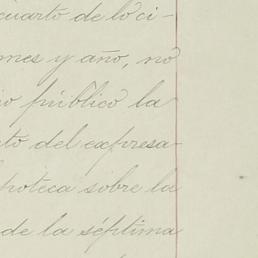 cuarto de lo ci-
mes y año, no
io público la
to del expresa-
poteca sobre la
de la séptima